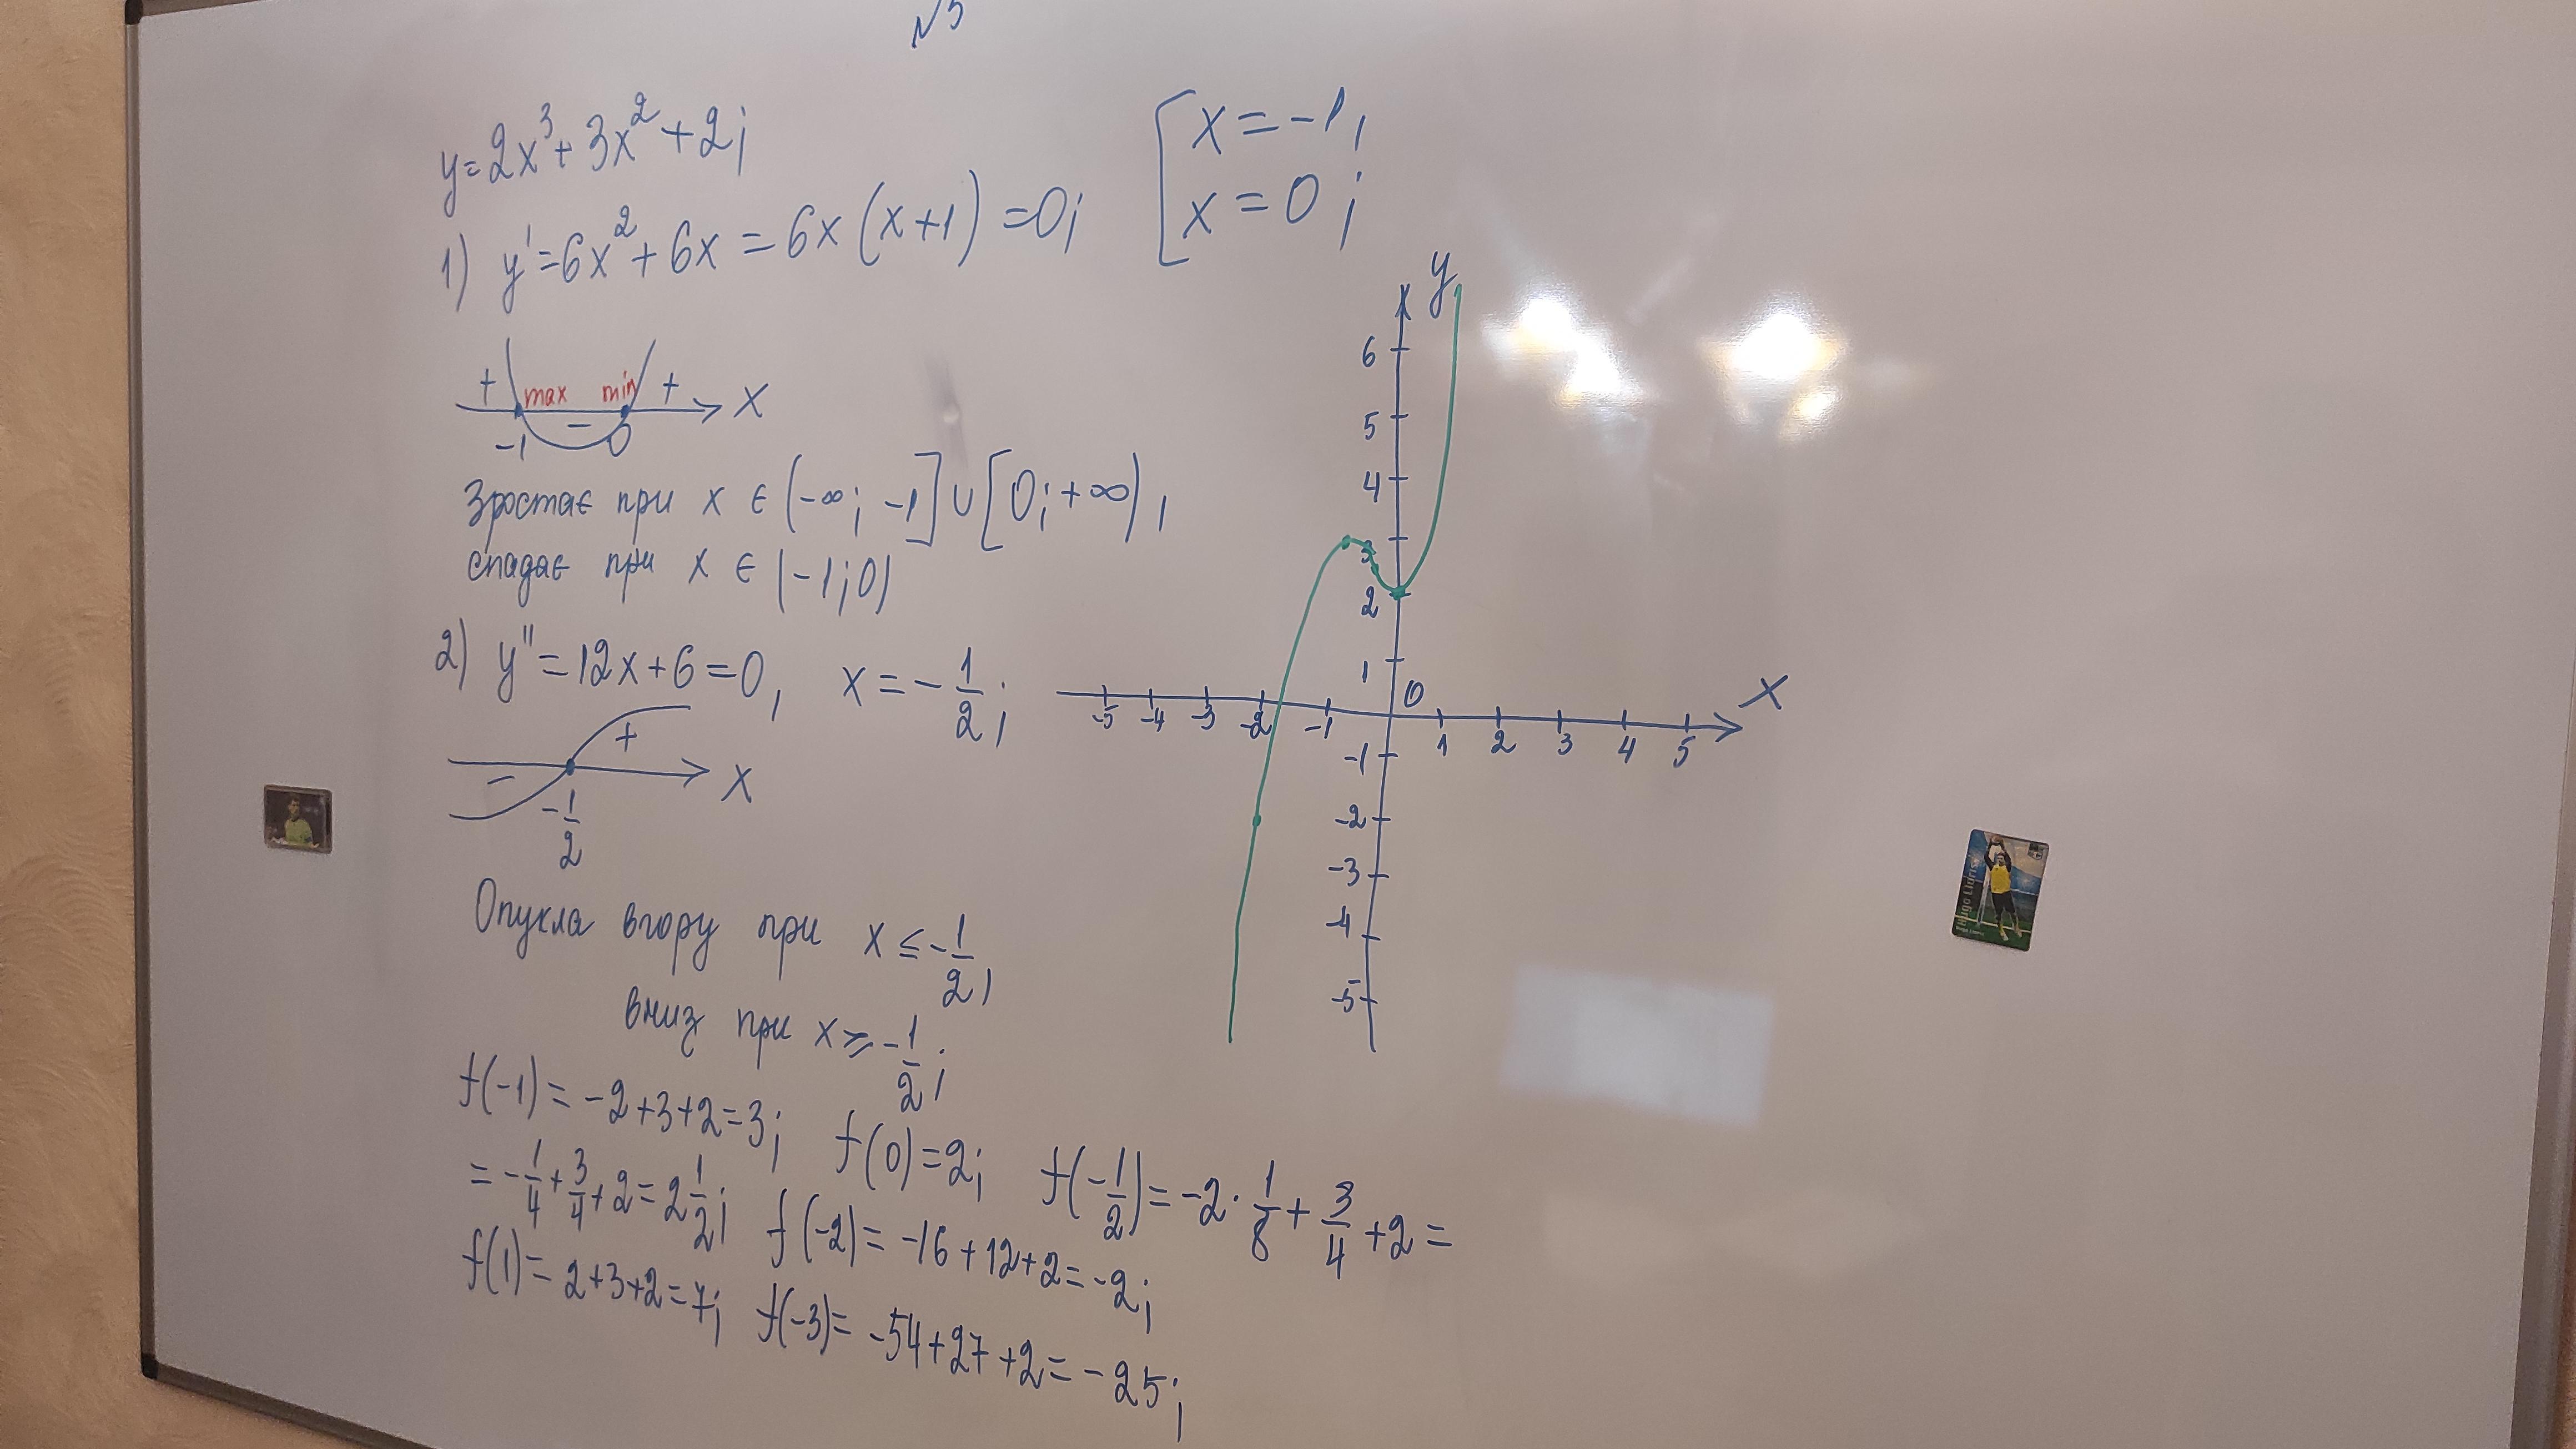 №5
y=2x³+3x²+2;
1) y'=6x²+6x=6x(x+1)=0; [x=-1,
x=0;
+ max min + x
-1 - 0
Зростає при x ∈ (-∞; -1] ∪ [0; +∞),
спадає при x ∈ (-1; 0)
2) y''=12x+6=0, x=-1/2;
- + x
-1/2
Опукла вгору при x ≤ -1/2,
вниз при x ≥ -1/2;
f(-1)=-2+3+2=3; f(0)=2; f(-1/2)=-2·1/8+3/4+2=
=-1/4+3/4+2=2 1/2; f(-2)=-16+12+2=-2;
f(1)=2+3+2=7; f(-3)=-54+27+2=-25;
y
6
5
4
3
2
1
-5 -4 -3 -2 -1 0 1 2 3 4 5 x
-1
-2
-3
-4
-5
Hugo Lloris